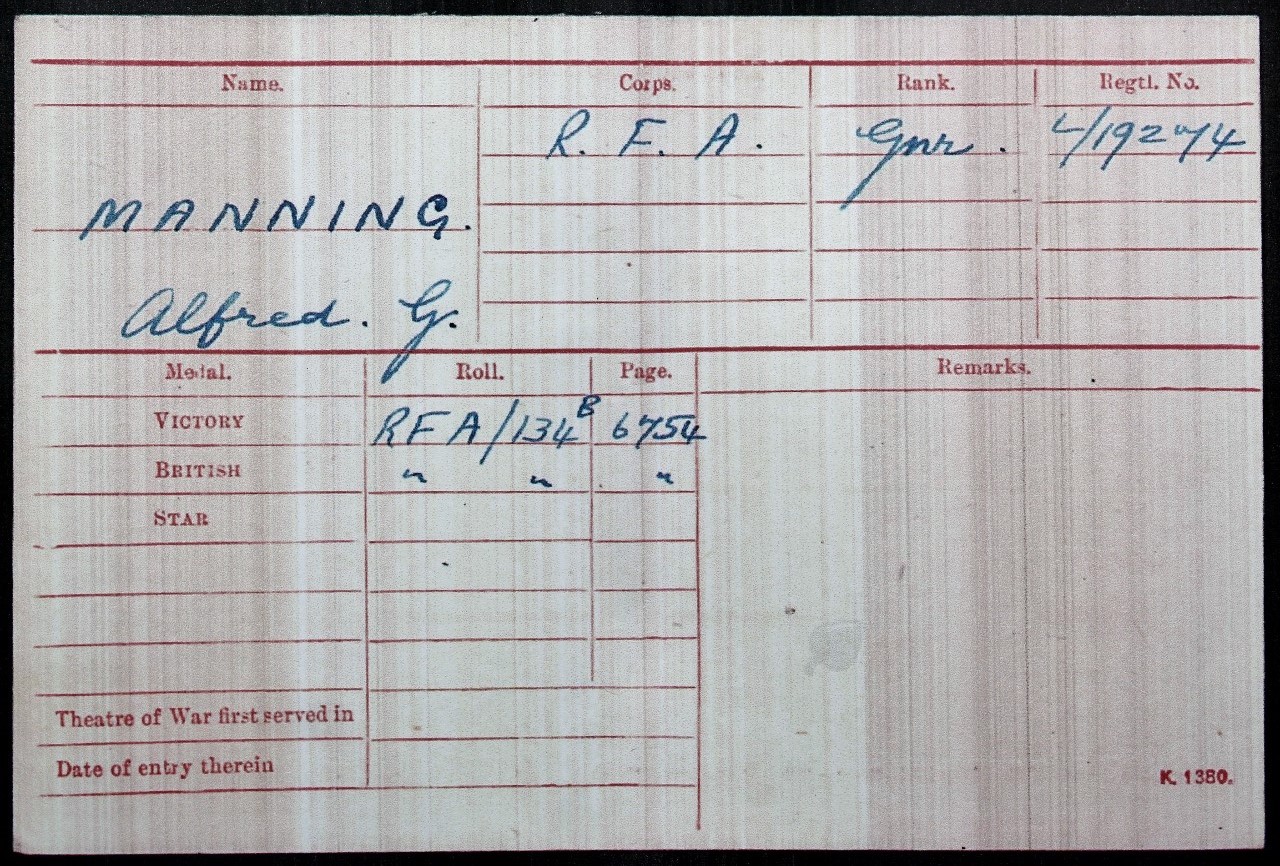 Name. Corps. Rank. Regtl. No.
R. F. A. Gnr. L/19274
MANNING.
Alfred. G.
Medal. Roll. Page. Remarks.
VICTORY RFA/134B 6754
BRITISH " " "
STAR
Theatre of War first served in
Date of entry therein
K. 1380.